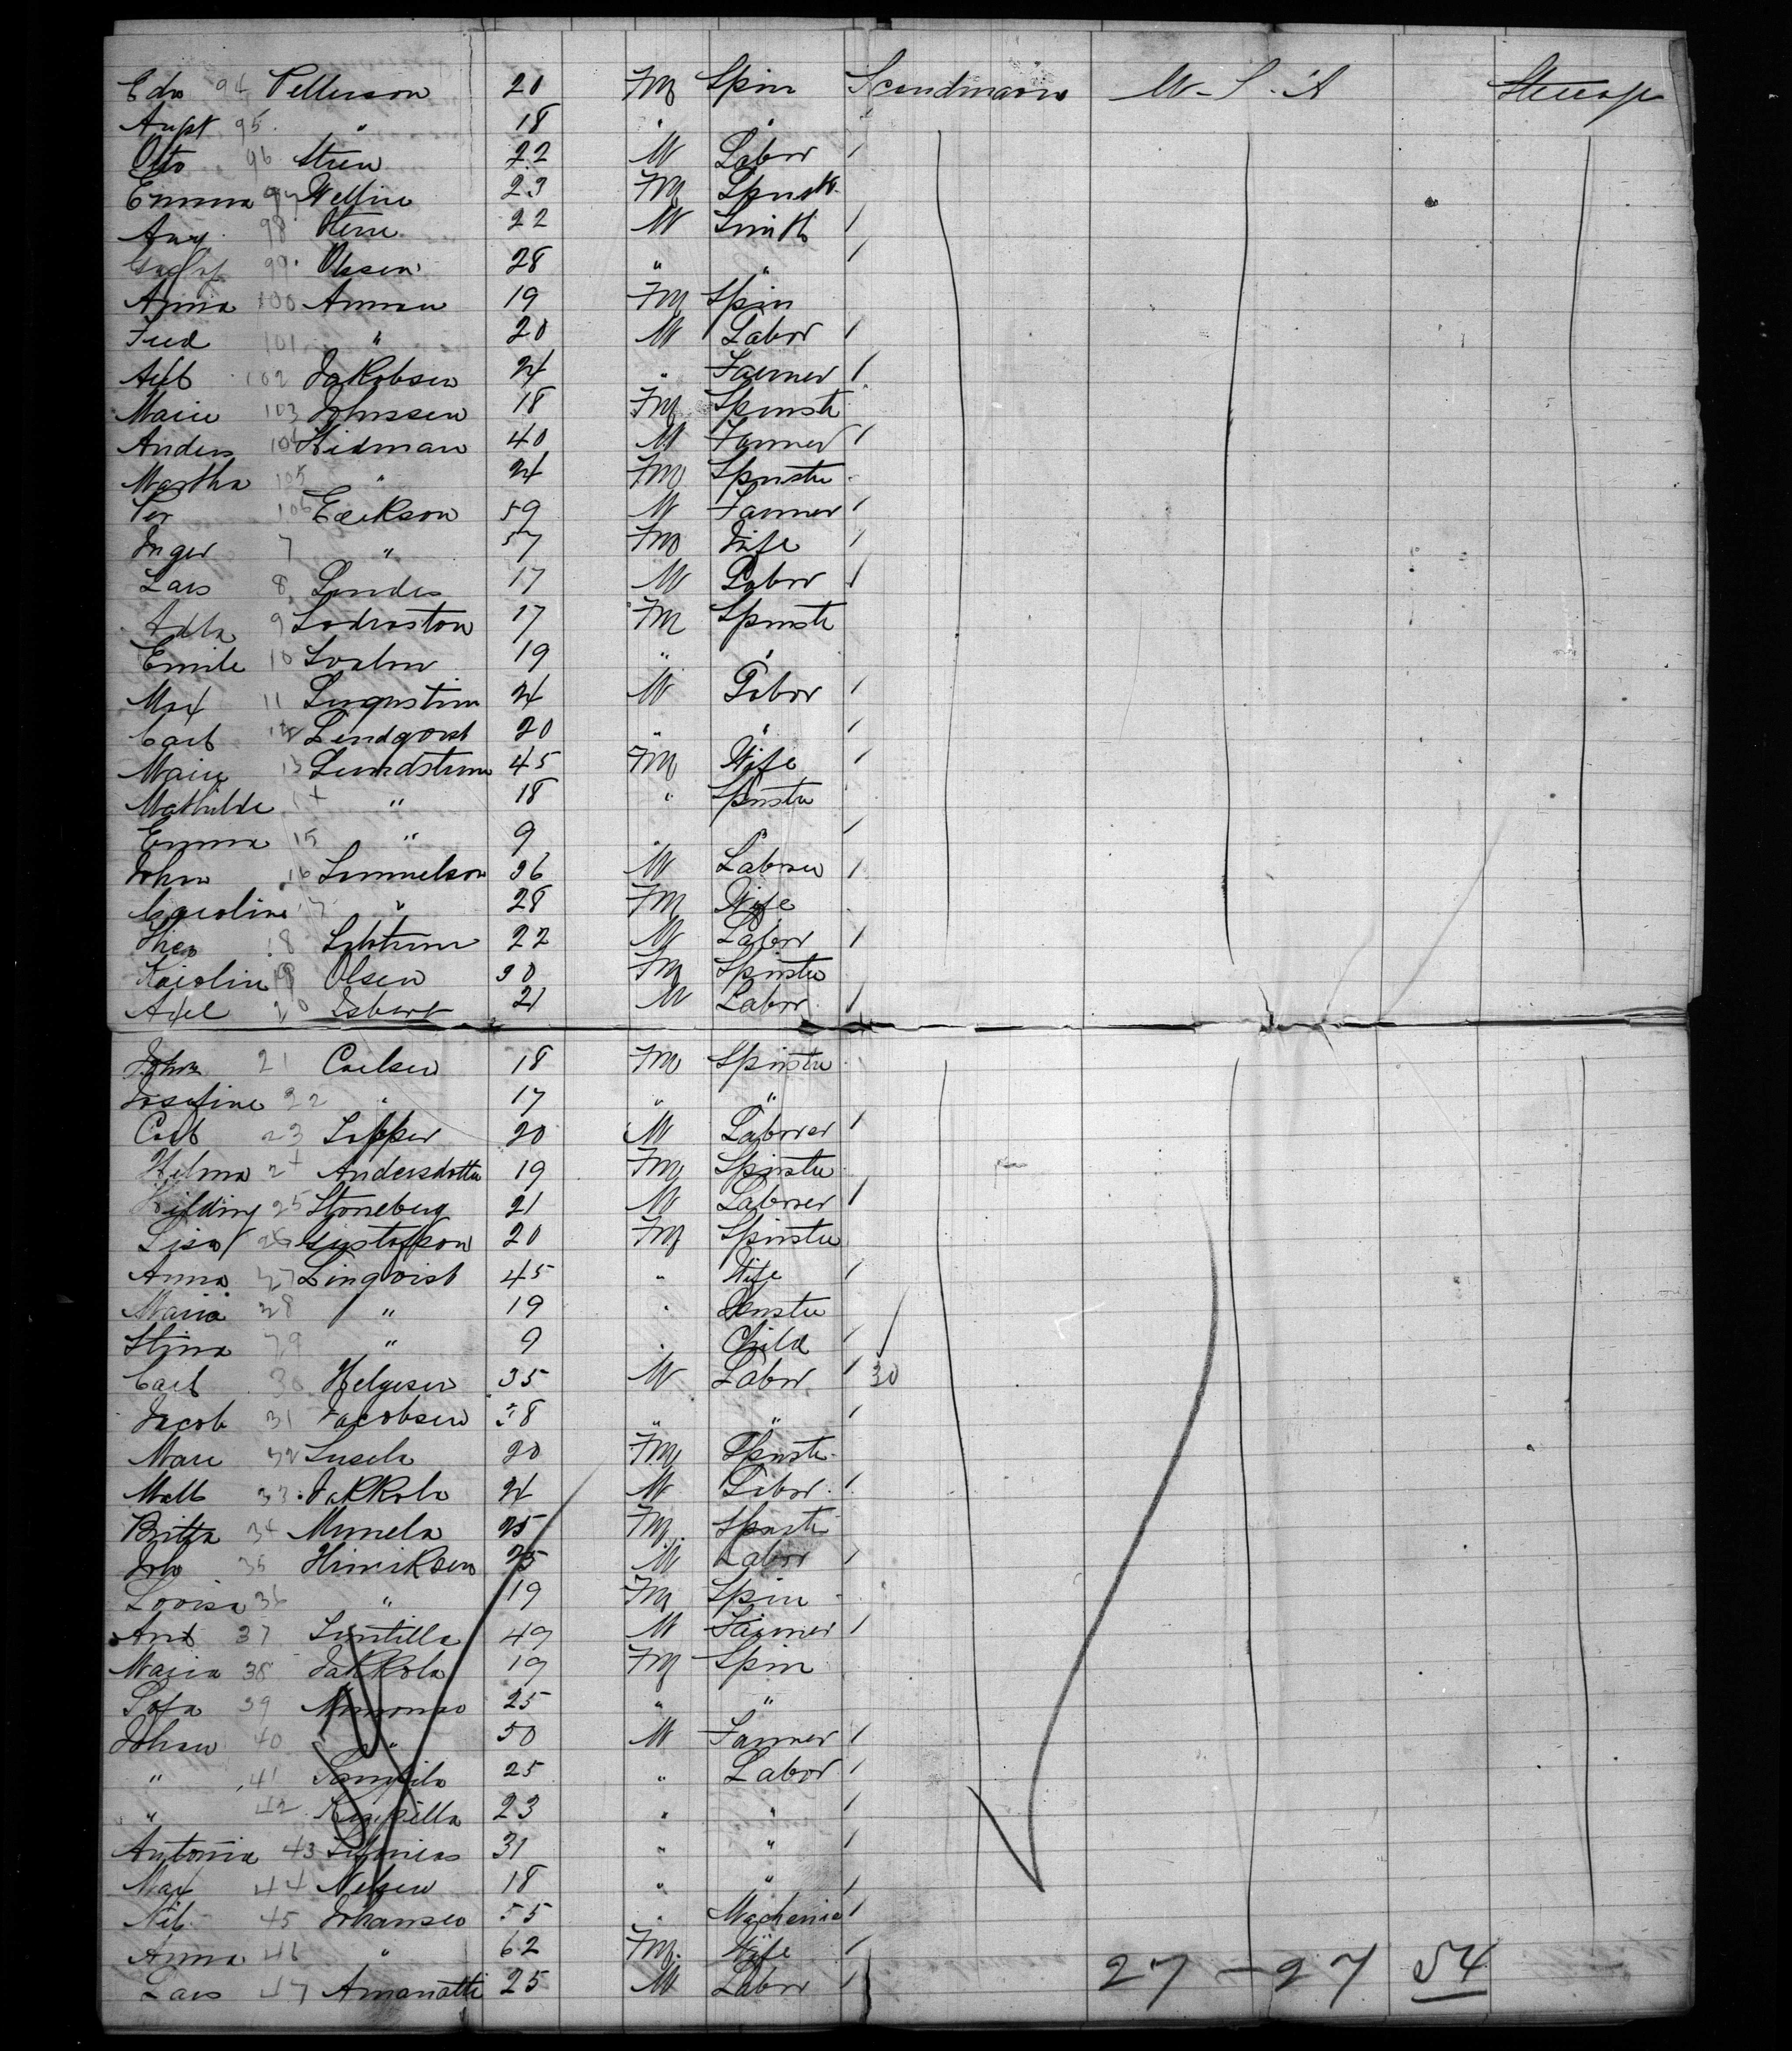 Edw 94 Petterson 20 Fm Spin Scandinavia U.S.A Steerage
Aupt 95 " 18 " "
Otto 96 Stren 22 M Labor /
Emma 97 Wellin 23 Fm Spinst
Aug 98 Stern 22 M Smith /
Gustaf 99 Olssen 28 " " /
Anna 100 Amman 19 Fm Spin
Fred 101 " 20 M Labor /
Alb 102 Jakobsen 24 " Farmer /
Marie 103 Johnssen 18 Fm Spinst
Anders 104 Hidman 40 M Farmer /
Martha 105 " 24 Fm Spinster
Per 106 Erikson 59 M Farmer /
Inger 7 " 57 Fm Wife /
Lars 8 Lindes 17 M Labor /
Adla 9 Sodroston 17 Fm Spinst
Emile 10 19 " "
Max 11 24 M Labor /
Carl 12 Lindqvist 20 " " /
Marie 13 Lundstrom 45 Fm Wife /
Mathilde 14 " 18 " Spinster
Emma 15 " 9 " " /
Johan 16 36 M Laborer /
Caroline 17 " 28 Fm Wife
18 22 M Labor /
Karolin 19 Olsen 30 Fm Spinster
Axel 20 Isberg 21 M Labor /
Johna 21 Carlsen 18 Fm Spinster
Josefine 22 " 17 " "
Carl 23 Sopper 20 M Laborer /
Hilma 24 Andersdotter 19 Fm Spinster
Hilding 25 Stoneberg 21 M Laborer /
Lisa 26 Gustafson 20 Fm Spinster
Anna 27 Linqvist 45 " Wife /
Maria 28 " 19 " Spinster
Stina 29 " 9 " Child /
Carl 30 Helgesen 35 M Labor / 30
Jacob 31 Jacobsen 38 " " /
Mari 32 20 Fm Spinst
Matt 33 Jakkola 24 M Labor /
Britta 34 Mumela 25 Fm Spinst
Joh 35 Hinriksen 25 M Labor /
Lovisa 36 " 19 Fm Spin
And 37 Suntilla 49 M Farmer /
Maria 38 Jakkola 19 Fm Spin
Sofa 39 25 " "
Johan 40 " 50 M Farmer /
" 41 25 " Labor /
" 42 Kempilla 23 " " /
Antonia 43 31 " " /
Max 44 Nelsen 18 " " /
Nil 45 Johansen 55 " Machenic /
Anna 46 " 62 Fm Wife /
Lars 47 Amanatti 25 M Labor /
27 - 27 54